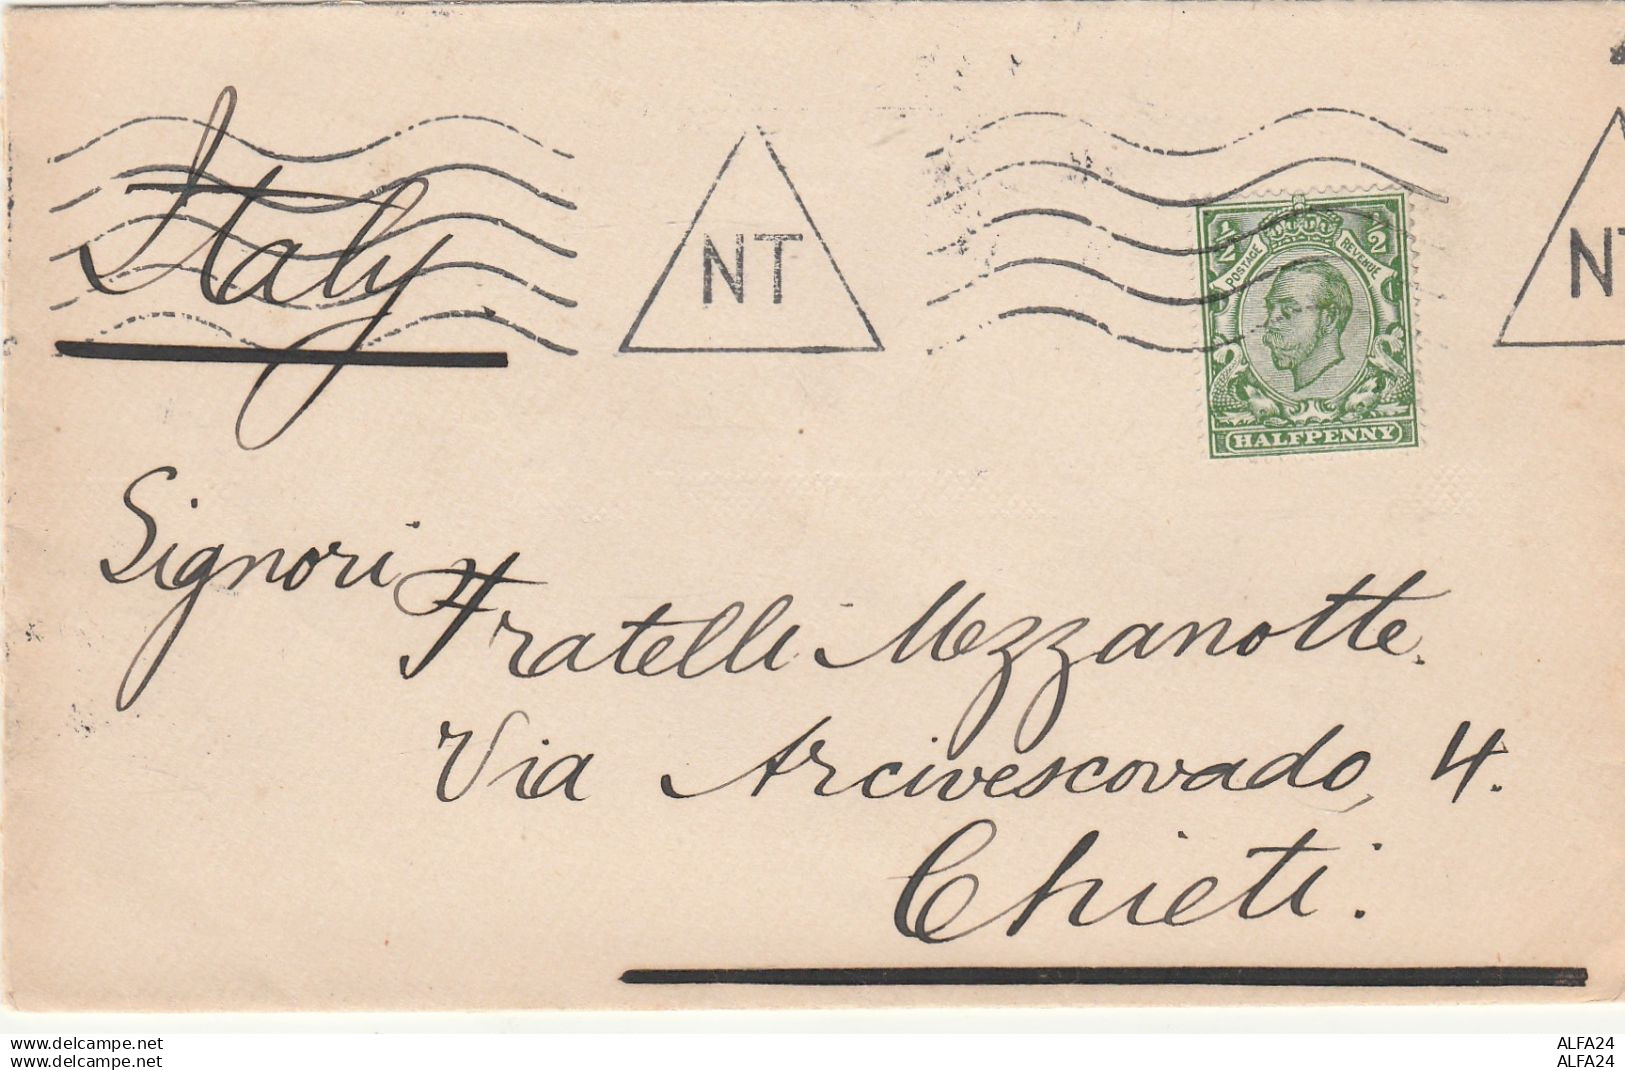 Italy
NT
NT
1/2
1/2
POSTAGE
REVENUE
HALFPENNY
Signori
Fratelli Mezzanotte.
Via Arcivescovado, 4.
Chieti.
www.delcampe.net
ALFA24
www.delcampe.net
ALFA24